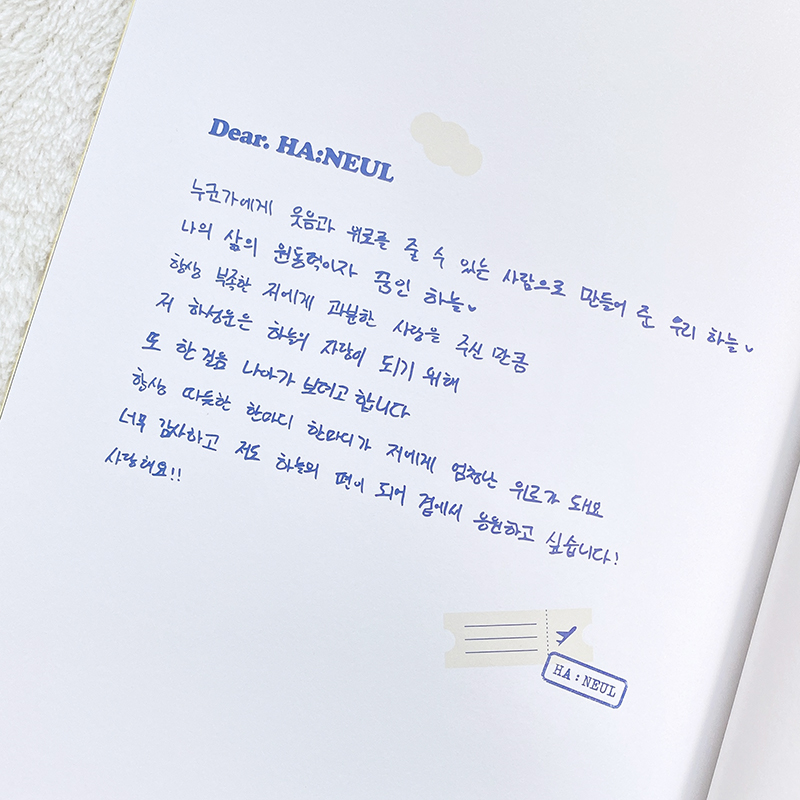 Dear. HA:NEUL
누군가에게 웃음과 위로를 줄 수 있는 사람으로 만들어 준 우리 하늘♥
나의 삶의 원동력이자 꿈인 하늘♥
항상 부족한 저에게 과분한 사랑을 주신 만큼
저 하성운은 하늘의 자랑이 되기 위해
또 한 걸음 나아가 보려고 합니다
항상 따뜻한 한마디 한마디가 저에게 엄청난 위로가 돼요
너무 감사하고 저도 하늘의 편이 되어 곁에서 응원하고 싶습니다!
사랑해요!!
HA:NEUL